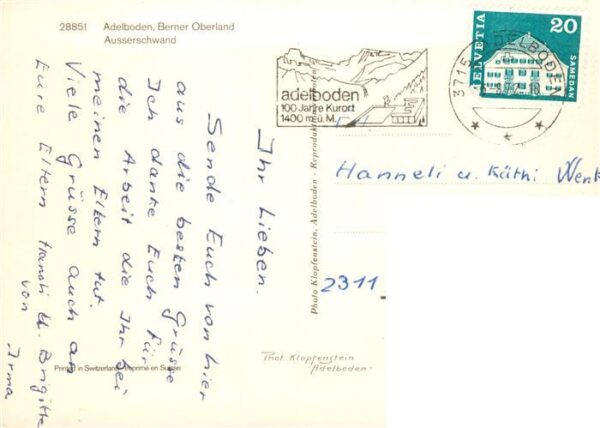 28851 Adelboden, Berner Oberland
Ausserschwand
adelboden
100 Jahre Kurort
1400 m ü. M.
3715 ADELBODEN
HELVETIA
20
SAMEDAN
Hanneli u. Käthi Wenk
2311
Ihr Lieben.
Sende Euch von hier
aus die besten Grüsse
Ich danke Euch für
die Arbeit die Ihr bei
meinen Eltern tut.
Viele Grüsse auch an
Eure Eltern Hansli u. Brigitte
von
Irma
Photo Klopfenstein, Adelboden - Reproduktion verboten
Phot. Klopfenstein
"Adelboden"
Printed in Switzerland - Imprimé en Suisse